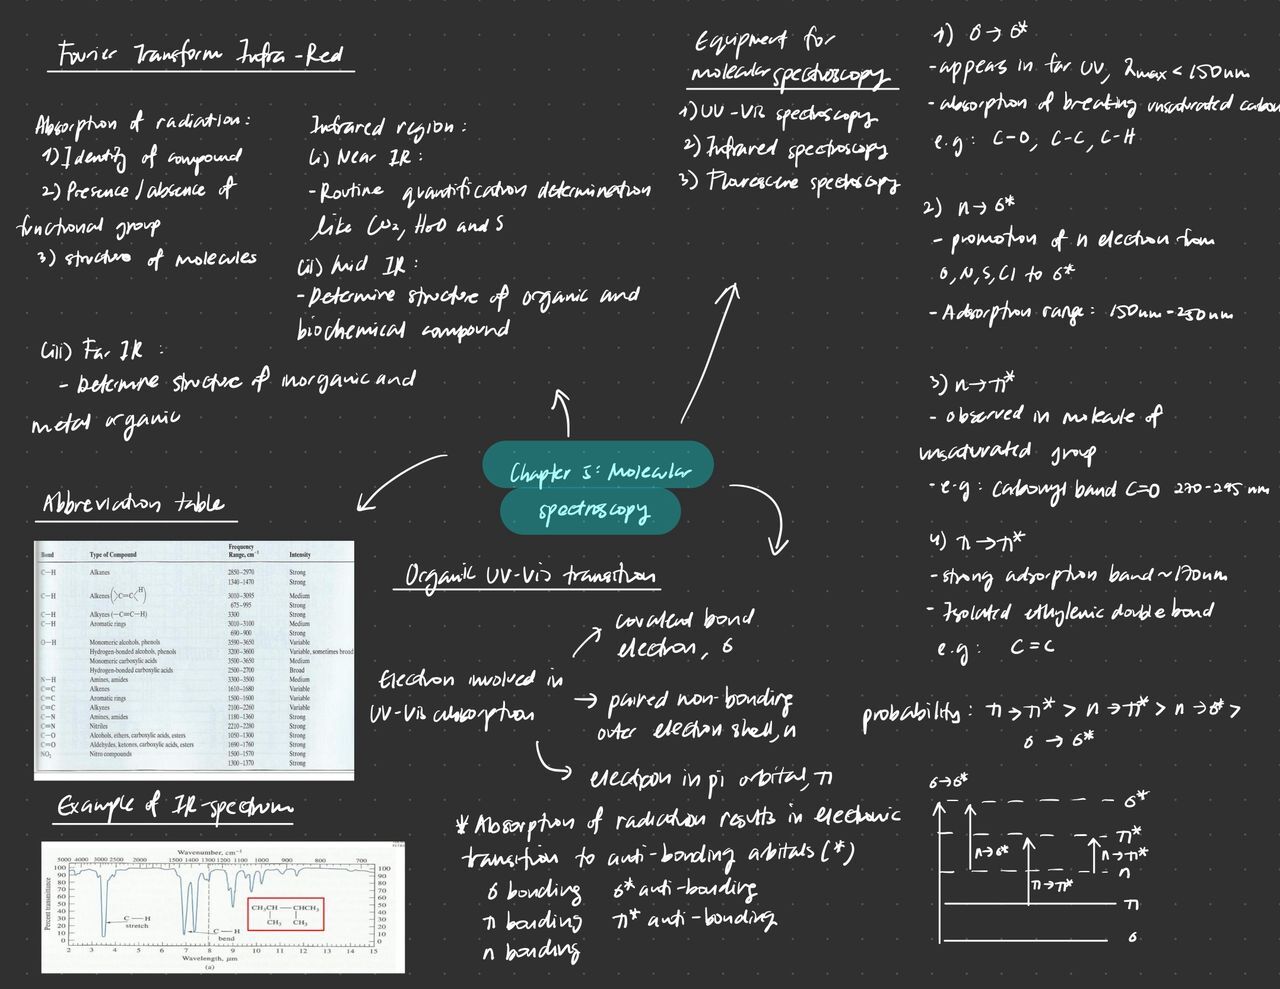 Fourier Transform Infra-Red
Absorption of radiation:
1) Identity of compound
2) Presence/absence of
functional group
3) structure of molecules
Infrared region:
(i) Near IR:
- Routine quantification determination
like CO2, H2O and S
(ii) Mid IR:
- Determine structure of organic and
biochemical compound
(iii) Far IR:
- Determine structure of inorganic and
metal organic
Equipment for
molecular spectroscopy
1) UV-Vis spectroscopy
2) Infrared spectroscopy
3) Fluorescene spectroscopy
Chapter 5: Molecular
spectroscopy
Abbreviation table
Bond Type of Compound Frequency Range, cm⁻¹ Intensity
C—H Alkanes 2850–2970 Strong
1340–1470 Strong
C—H Alkenes (>C=C<H) 3010–3095 Medium
675–995 Strong
C—H Alkynes (—C≡C—H) 3300 Strong
C—H Aromatic rings 3010–3100 Medium
690–900 Strong
O—H Monomeric alcohols, phenols 3590–3650 Variable
Hydrogen-bonded alcohols, phenols 3200–3600 Variable, sometimes broad
Monomeric carboxylic acids 3500–3650 Medium
Hydrogen-bonded carboxylic acids 2500–2700 Broad
N—H Amines, amides 3300–3500 Medium
C=C Alkenes 1610–1680 Variable
C=C Aromatic rings 1500–1600 Variable
C≡C Alkynes 2100–2260 Variable
C—N Amines, amides 1180–1360 Strong
C≡N Nitriles 2210–2280 Strong
C—O Alcohols, ethers, carboxylic acids, esters 1050–1300 Strong
C=O Aldehydes, ketones, carboxylic acids, esters 1690–1760 Strong
NO₂ Nitro compounds 1500–1570 Strong
1300–1370 Strong
Example of IR-spectrum
Wavenumber, cm⁻¹
5000 4000 3000 2500 2000 1500 1400 1300 1200 1100 1000 900 800 700
Percent transmittance
100 90 80 70 60 50 40 30 20 10 0
C—H
stretch
C—H
bend
CH₃CH—CHCH₃
CH₃ CH₃
100 90 80 70 60 50 40 30 20 10 0
2 3 4 5 6 7 8 9 10 11 12 13 14 15
Wavelength, μm
(a)
Organic UV-Vis transition
Electron involved in
UV-Vis absorption
→ covalent bond
electron, σ
→ paired non-bonding
outer electron shell, n
→ electron in pi orbital, π
* Absorption of radiation results in electronic
transition to anti-bonding orbitals (*)
σ bonding σ* anti-bonding
π bonding π* anti-bonding
n bonding
1) σ → σ*
- appears in far UV, λmax < 150nm
- absorption of breaking unsaturated carbon
e.g: C-O, C-C, C-H
2) n → σ*
- promotion of n electron from
O, N, S, Cl to σ*
- Adsorption range: 150nm-250nm
3) n → π*
- observed in molecule of
unsaturated group
- e.g: Carbonyl band C=O 270-295 nm
4) π → π*
- strong adsorption band ~170nm
- Isolated ethylenic double bond
e.g: C=C
probability: π → π* > n → π* > n → σ* >
σ → σ*
σ → σ*
σ*
π*
n → σ*
n → π*
n
π → π*
π
σ